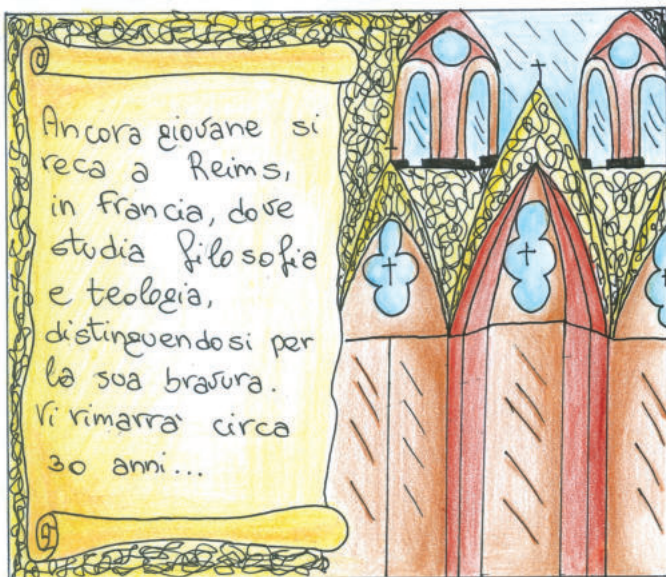 Ancora giovane si
reca a Reims,
in Francia, dove
studia filosofia
e teologia,
distinguendosi per
la sua bravura.
Vi rimarrà circa
30 anni...